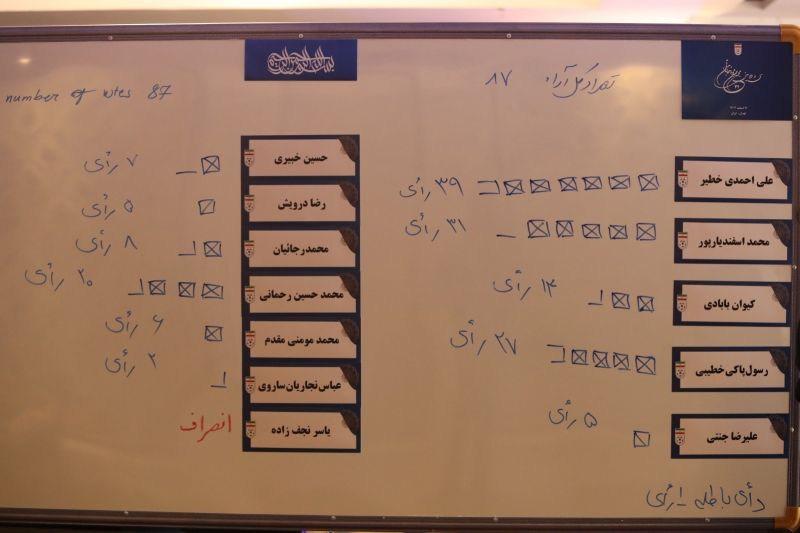 تعداد کل آراء ۸۷
number of votes 87
علی احمدی خطیر ۳۹ رأی
محمد اسفندیارپور ۳۱ رأی
کیوان بابادی ۱۲ رأی
رسول پاکی خطیبی ۲۷ رأی
علیرضا جنتی ۵ رأی
رأی باطله ۱ رأی
حسین خبیری ۷ رأی
رضا درویش ۵ رأی
محمد رجائیان ۸ رأی
محمد حسین رحمانی ۲۰ رأی
محمد مومنی مقدم ۶ رأی
عباس نجاریان ساروی ۲ رأی
یاسر نجف زاده انصراف